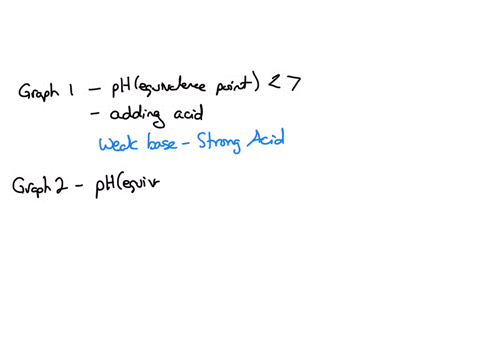 Graph 1 - pH(equivalence point) < 7
- adding acid
Weak base - Strong Acid
Graph 2 - pH(equiv